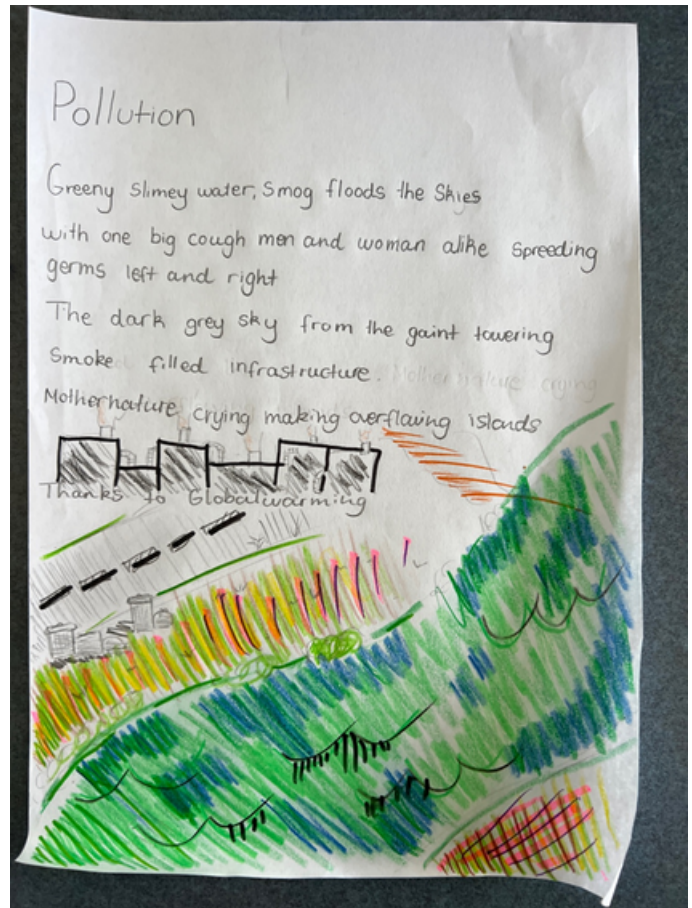 Pollution
Greeny Slimey water, Smog floods the Skies
with one big cough men and woman alike spreeding
germs left and right
The dark grey sky from the gaint towering
Smoke filled infrastructure. Mothernature crying
Mothernature crying making overflaving islands
Thanks to Globalwarming